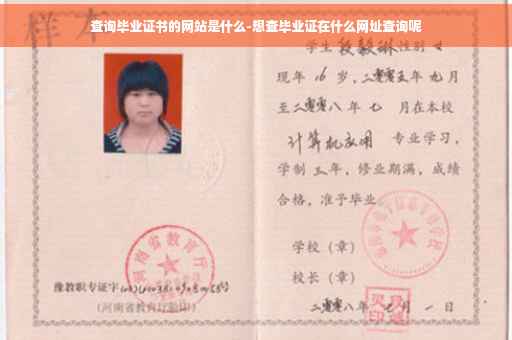 查询毕业证书的网站是什么-想查毕业证在什么网址查询呢
样本
学生段毅琳性别女
现年16岁,二零零五年九月
至二零零八年七月在本校
计算机应用 专业学习,
学制三年,修业期满,成绩
合格,准予毕业
学校(章)
校长(章)
二零零八年七月一日
河南省教育厅
豫教职专证字
(河南省教育厅验印)